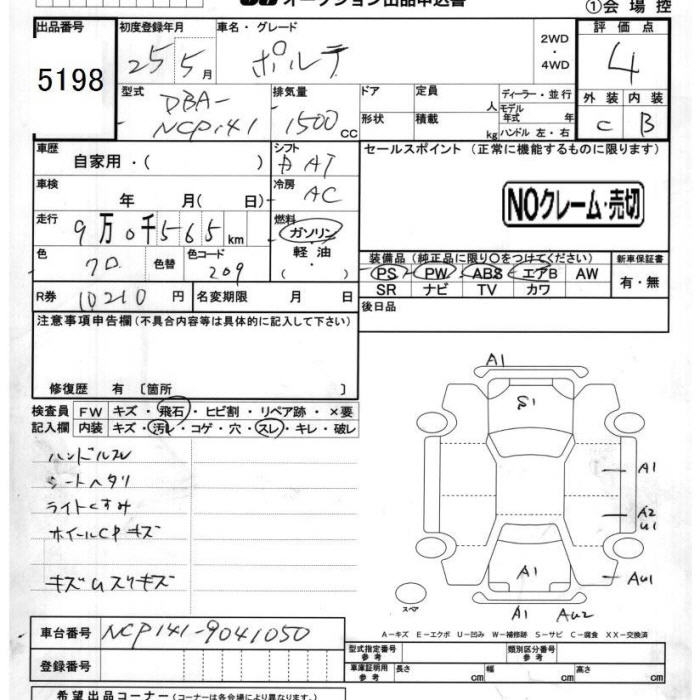 オークション出品申込書
①会場控
出品番号
5198
初度登録年月
25年5月
車名・グレード
ポルテ
2WD
・
4WD
評価点
4
外装 内装
C B
型式
DBA-
NCP141
排気量
1500cc
ドア
定員 人
形状
積載 kg
ディーラー・並行
モデル
年式 年
ハンドル 左・右
車歴
自家用・( )
シフト
AT
車検
年 月( 日)
冷房
AC
走行
9万0千565km
燃料
ガソリン
軽油
・( )
色
クロ
色替
色コード
209
R券 10210円
名変期限 月 日
セールスポイント (正常に機能するものに限ります)
NOクレーム・売切
装備品 (純正品に限り○をつけてください)
PS PW ABS エアB AW
SR ナビ TV カワ
新車保証書
有・無
後日品
注意事項申告欄 (不具合内容等は具体的に記入して下さい)
修復歴 有 〔箇所 〕
検査員 FW キズ・飛石・ヒビ割・リペア跡・×要
記入欄 内装 キズ・汚レ・コゲ・穴・スレ・キレ・破レ
ハンドルスレ
シートヘタリ
ライトくすみ
ホイールCPキズ
キズUスリキズ
A1
S1
A1
A2
U1
AU1
A1
A1 AU2
スペア
A−キズ E−エクボ U−凹み W−補修跡 S−サビ C−腐食 XX−交換済
車台番号 NCP141-9041050
登録番号
型式指定番号
参考
類別区分番号
参考
車庫証明用
参考
長さ cm 幅 cm 高さ cm
希望出品コーナー (コーナーは各会場により異なります)